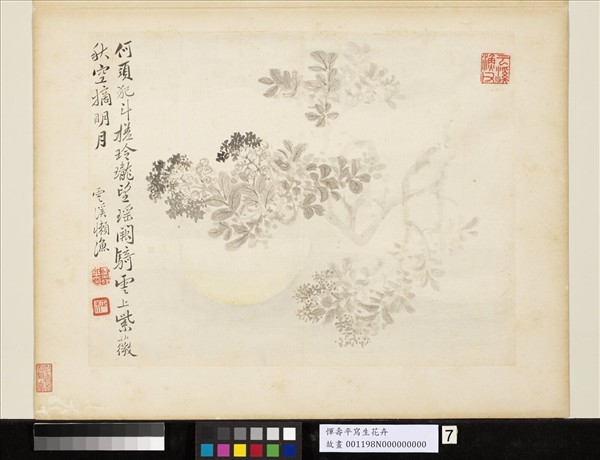 何須犯斗槎玲瓏望瑤闕騎雲上紫薇
秋空摘明月
雲溪懶漁
云溪漁父
惲壽平寫生花卉
故畫 001198N000000000
7